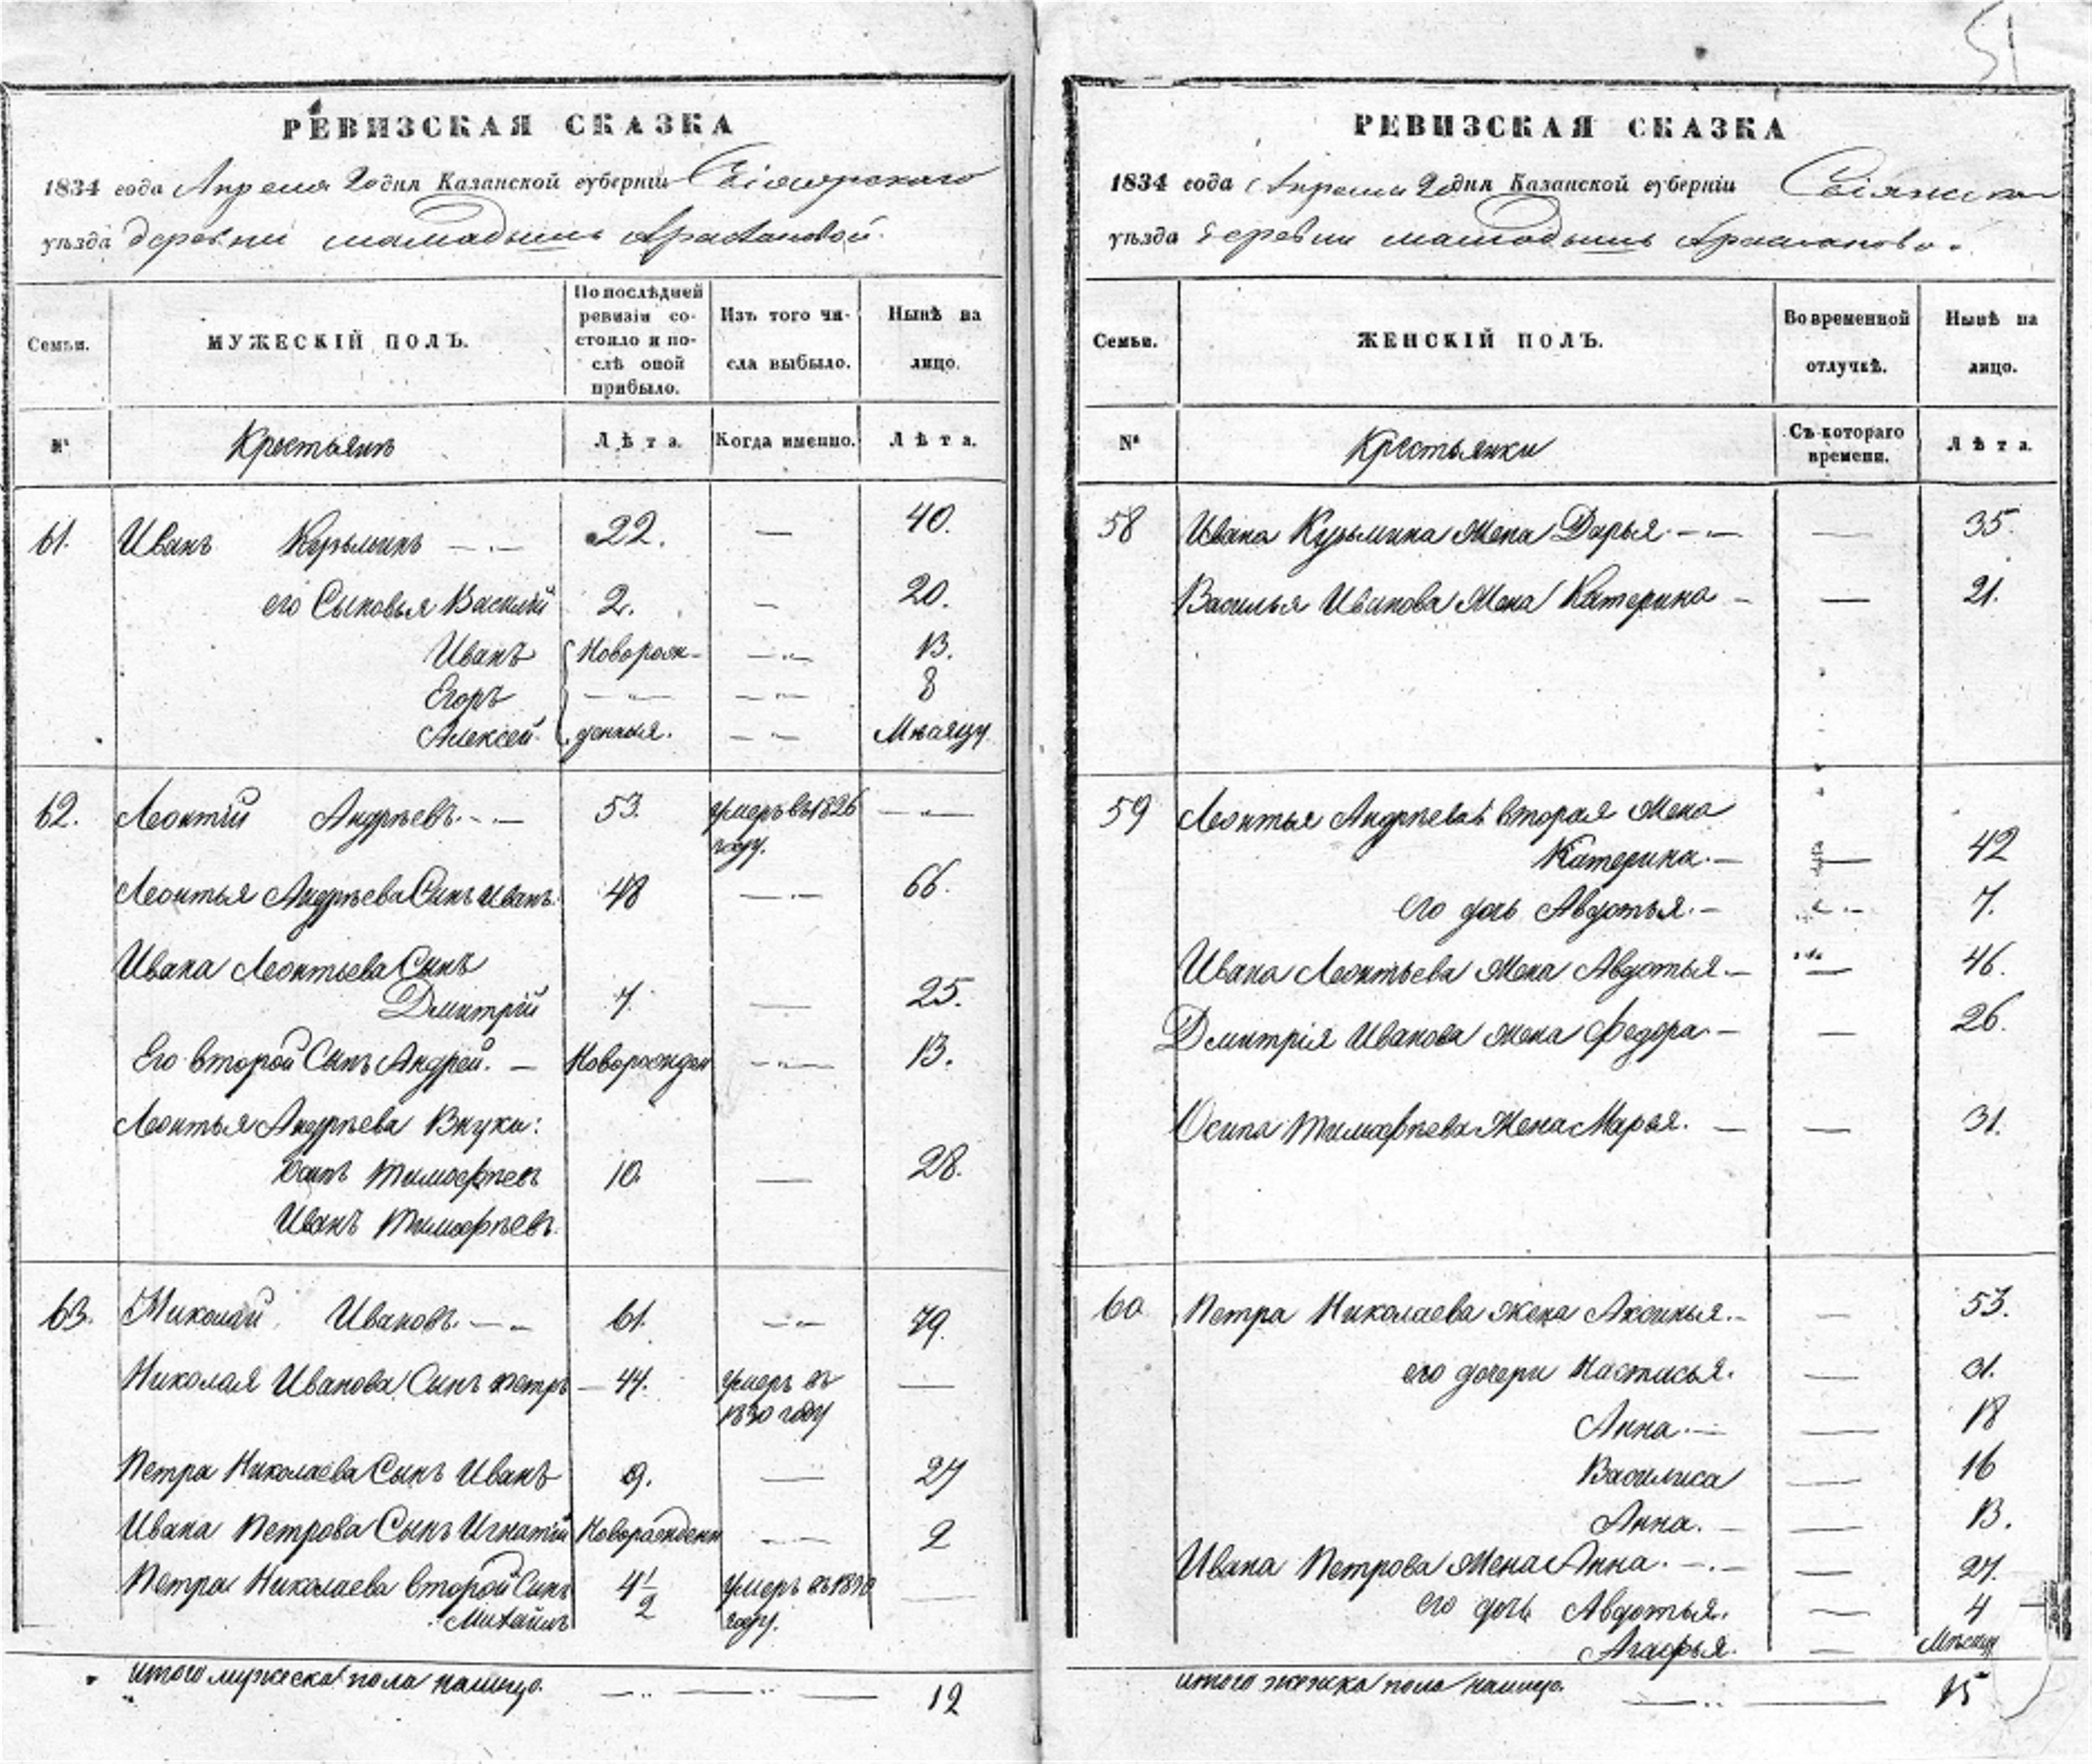 51
РЕВИЗСКАЯ СКАЗКА
1834 года Апреля 20 дня Казанской губерніи Свіяжскаго
уѣзда деревни мамадышъ Арасланова.
Семьи.
МУЖЕСКІЙ ПОЛЪ.
По послѣдней ревизіи состояло и послѣ оной прибыло.
Изъ того числа выбыло.
Нынѣ на лицо.
№
Крестьянъ
Лѣта.
Когда именно.
Лѣта.
61. Иванъ Кузьминъ 22. — 40.
его Сыновья Василій 2. — 20.
Иванъ Новорож- — 13.
Егоръ — — 8
Алексей денныя. — Мѣсяцу
62. Леонтій Андрѣевъ 53. умеръ въ 1826 —
году.
Леонтья Андрѣева Сынъ Иванъ. 48 — 66.
Ивана Леонтьева Сынъ
Дмитрій 7. — 25.
Его второй Сынъ Андрей. — Новорожден — 13.
Леонтья Андрѣева Внуки:
Осипъ Тимофѣевъ 10. — 28.
Иванъ Тимофѣевъ.
63. Николай Ивановъ 61. — 79.
Николая Иванова Сынъ петръ — 44. умеръ въ —
1830 году
Петра Николаева Сынъ Иванъ 9. — 27
Ивана Петрова Сынъ Игнатій Новорожденн — 2
Петра Николаева второй Сынъ 4 1/2 умеръ въ 1830 —
Михаилъ году.
итого мужеска пола налицо. — 12
РЕВИЗСКАЯ СКАЗКА
1834 года Апреля 20 дня Казанской губерніи
уѣзда деревни мамадышъ Арасланово.
Семьи.
ЖЕНСКІЙ ПОЛЪ.
Во временной отлучкѣ.
Нынѣ на лицо.
№
Крестьянки
Съ котораго времени.
Лѣта.
58 Ивана Кузьмина Жена Дарья — 35.
Василья Иванова Жена Катерина — 21.
59 Леонтья Андрѣева вторая Жена
Катерина. — 42
его дочь Авдотья. — 7.
Ивана Леонтьева Жена Авдотья — 46.
Дмитрія Иванова жена Федора — 26.
Осипа Тимофѣева Жена Марья. — 31.
60 Петра Николаева жена Аксинья. — 53.
его дочери Настасья. — 31.
Анна. — 18
Василиса — 16
Анна. — 13.
Ивана Петрова Жена Анна. — 27.
его дочь Авдотья. — 4
Агафья. —
итого женска пола налицо. — 15